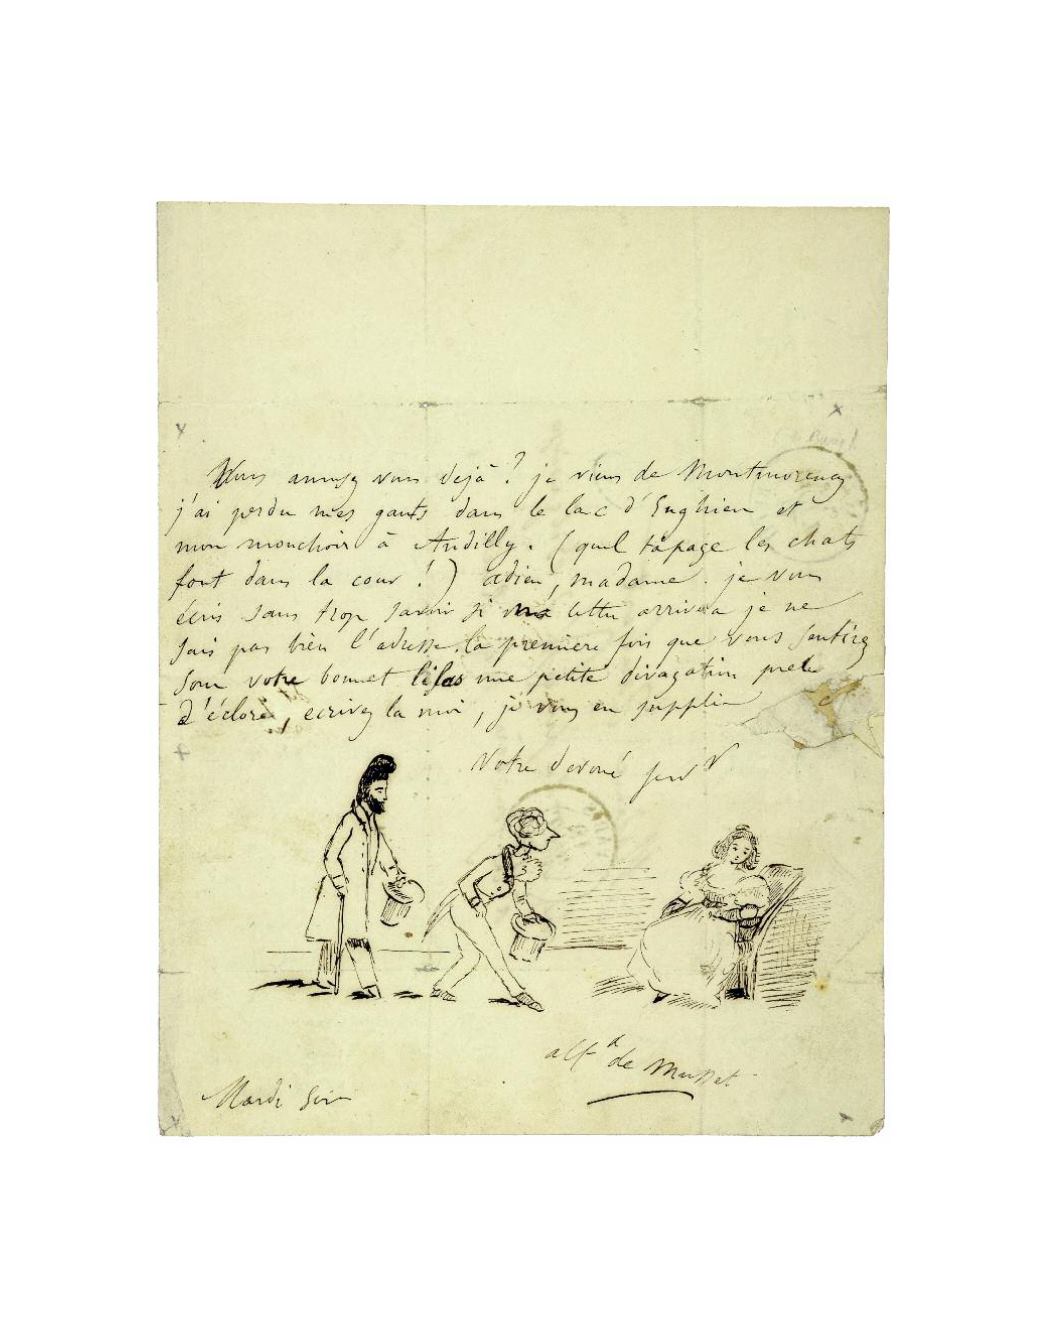 Vous amusez vous déjà ? je viens de Montmorency
j'ai perdu mes gants dans le lac d'Enghien et
mon mouchoir à Andilly. (quel tapage les chats
font dans la cour !) adieu, madame. je vous
écris sans trop savoir si ma lettre arrivera je ne
sais pas bien l'adresse. la premiere fois que vous sentirez
sous votre bonnet lilas une petite divagation prete
d'éclore, ecrivez la moi, je vous en supplie
Votre dévoué serv r
alf d de Musset
Mardi soir